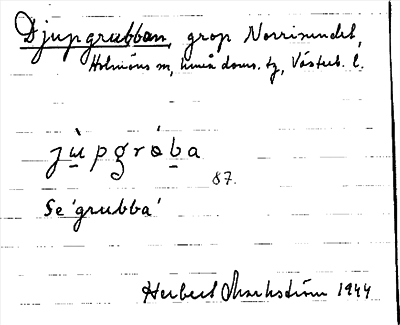 Djupgrubban, grop Norrsundet,
Holmöns sn, Umeå doms. tg, Västerb. l.
jùpgróba
87.
Se 'grubba'
Herbert Markström 1944